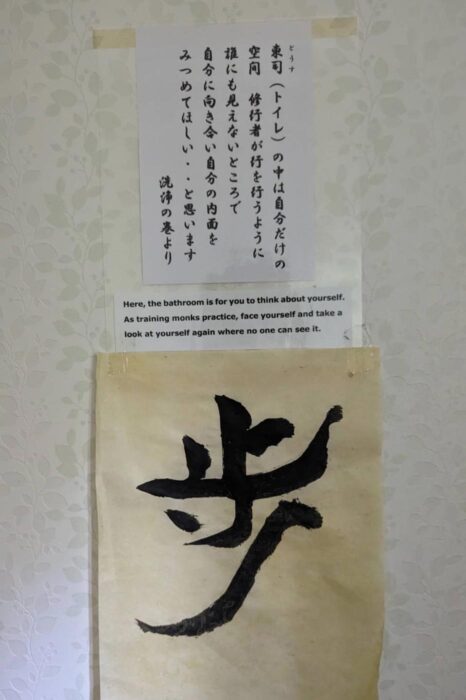 東司（トイレ）の中は自分だけの
空間　修行者が行を行うように
誰にも見えないところで
自分に向き合い自分の内面を
みつめてほしい・・と思います
洗浄の巻より
Here, the bathroom is for you to think about yourself.
As training monks practice, face yourself and take a
look at yourself again where no one can see it.
歩